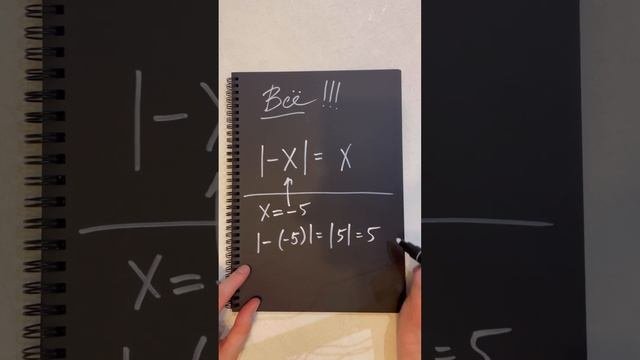 Всё !!!
|-x| = x
x = -5
|-(-5)| = |5| = 5